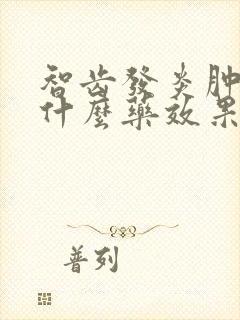 智齿發炎肿
什麼藥效果
普列